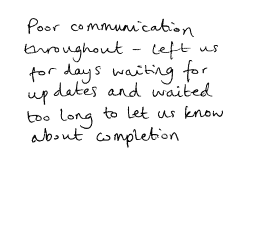 Poor communication
throughout - left us
for days waiting for
updates and waited
too long to let us know
about completion